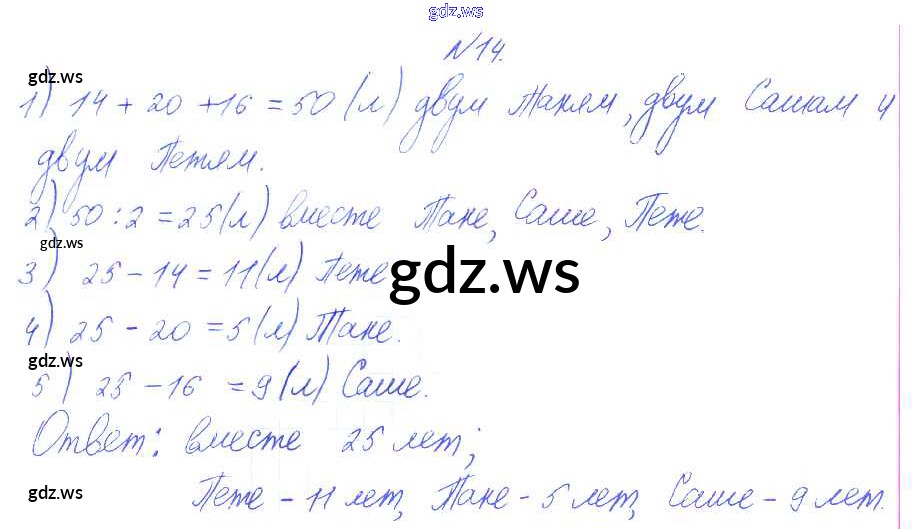 gdz.ws
№14.
gdz.ws
1) 14 + 20 + 16 = 50 (л) двум Таням, двум Сашам и
двум Петям.
2) 50 : 2 = 25 (л) вместе Тане, Саше, Пете.
gdz.ws
3) 25 - 14 = 11 (л) Пете
gdz.ws
4) 25 - 20 = 5 (л) Тане.
gdz.ws
5) 25 - 16 = 9 (л) Саше.
Ответ: вместе 25 лет;
gdz.ws
Пете - 11 лет, Тане - 5 лет, Саше - 9 лет.